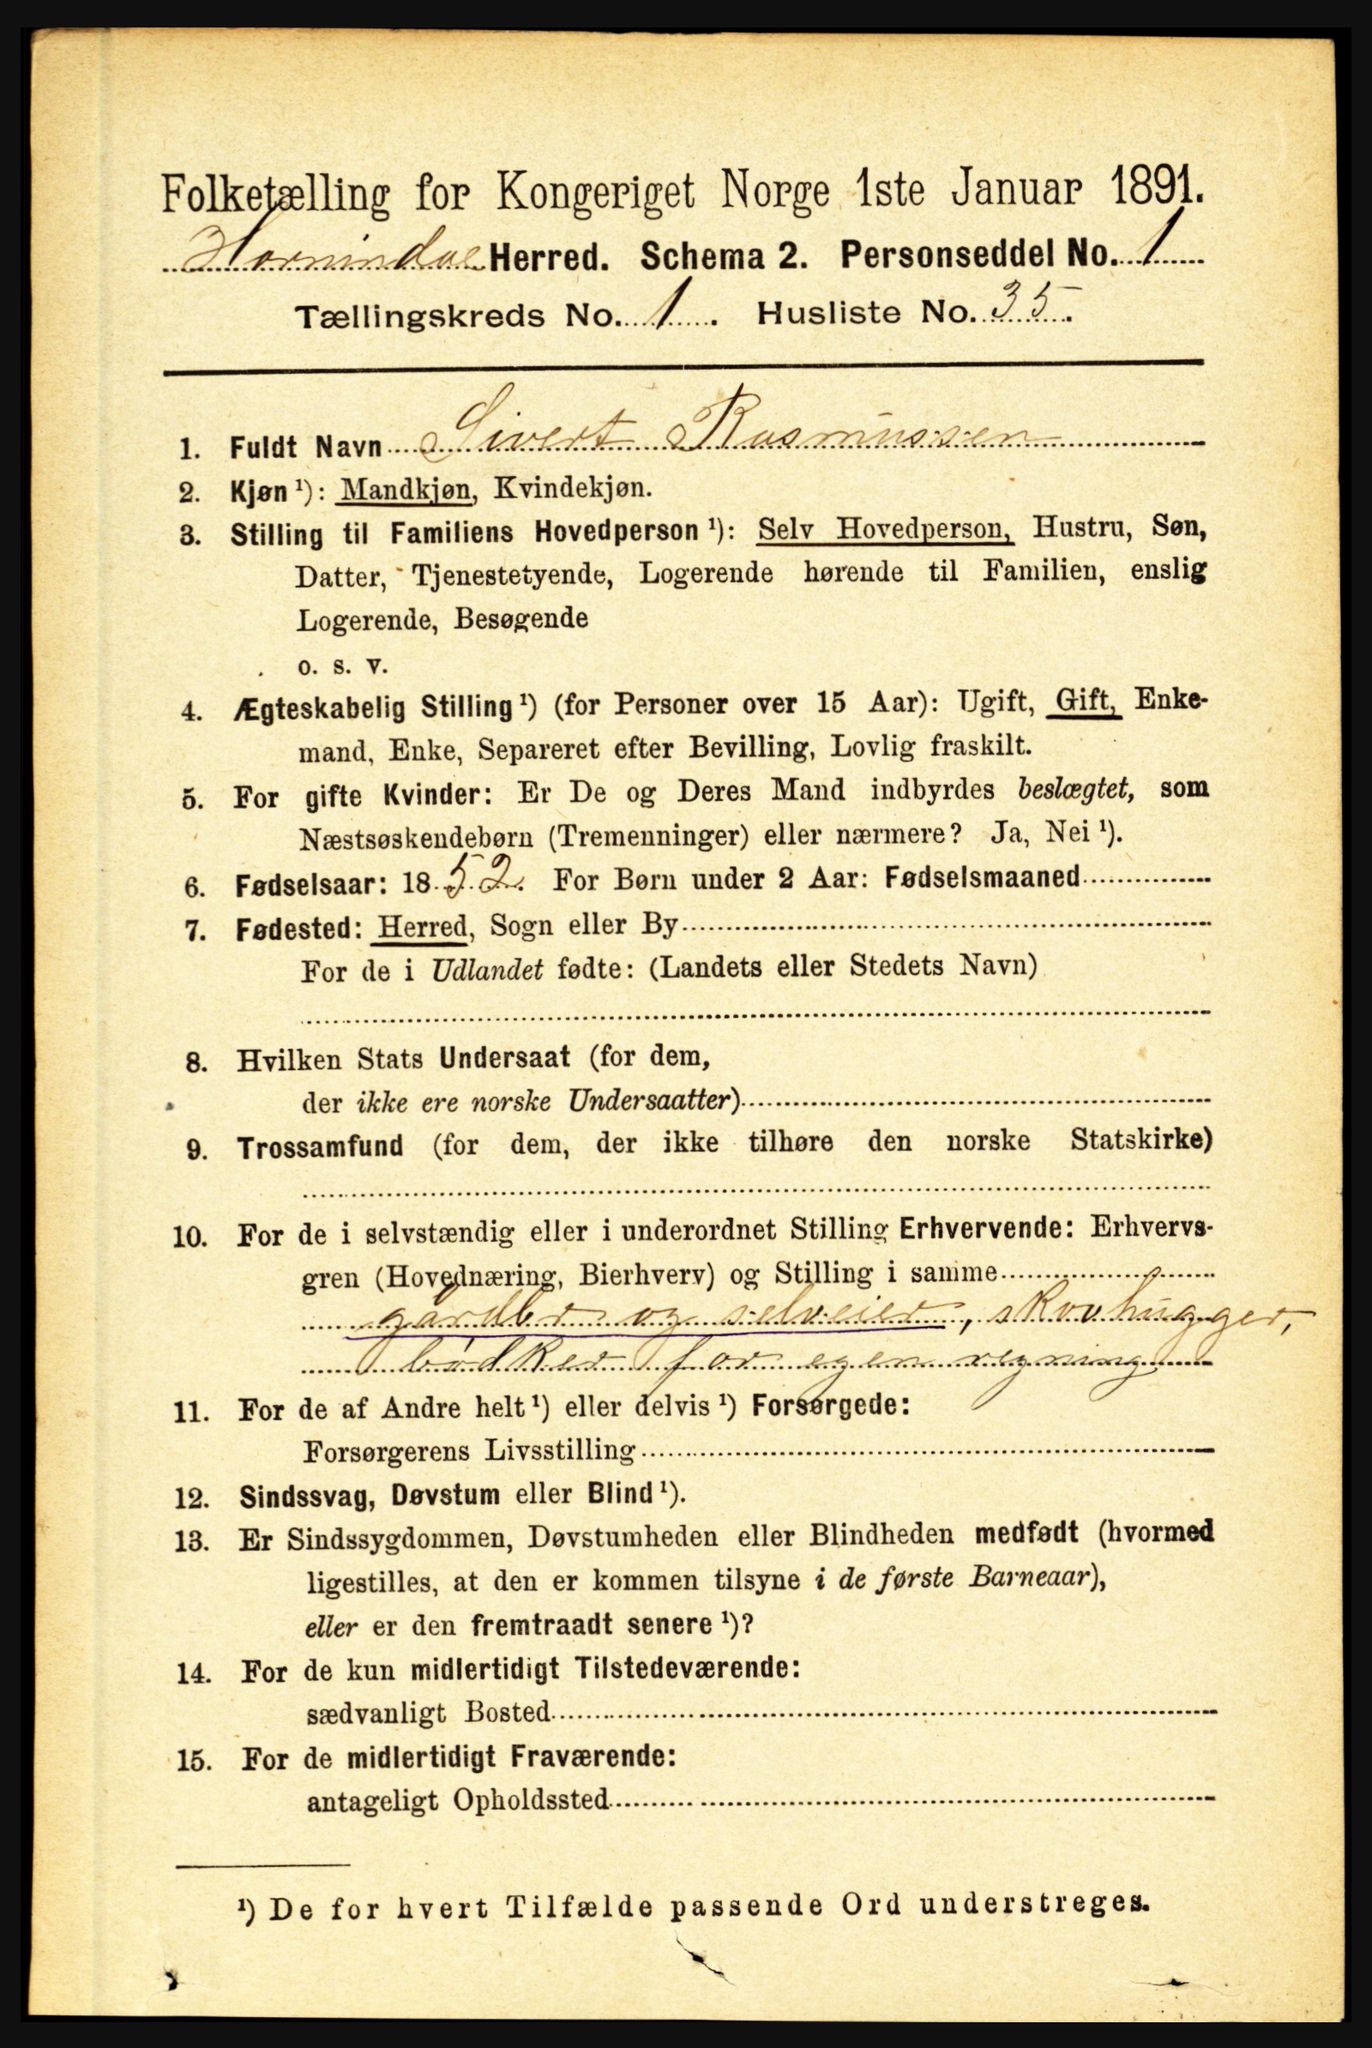 Folketælling for Kongeriget Norge 1ste Januar 1891.
Hornindal Herred. Schema 2. Personseddel No. 1
Tællingskreds No. 1. Husliste No. 35.
1. Fuldt Navn Sivert Rasmussen
2. Kjøn ¹): Mandkjøn, Kvindekjøn.
3. Stilling til Familiens Hovedperson ¹): Selv Hovedperson, Hustru, Søn,
Datter, Tjenestetyende, Logerende hørende til Familien, enslig
Logerende, Besøgende
o. s. v.
4. Ægteskabelig Stilling ¹) (for Personer over 15 Aar): Ugift, Gift, Enke-
mand, Enke, Separeret efter Bevilling, Lovlig fraskilt.
5. For gifte Kvinder: Er De og Deres Mand indbyrdes beslægtet, som
Næstsøskendebørn (Tremenninger) eller nærmere? Ja, Nei ¹).
6. Fødselsaar: 1852. For Børn under 2 Aar: Fødselsmaaned
7. Fødested: Herred, Sogn eller By
For de i Udlandet fødte: (Landets eller Stedets Navn)
8. Hvilken Stats Undersaat (for dem,
der ikke ere norske Undersaatter)
9. Trossamfund (for dem, der ikke tilhøre den norske Statskirke)
10. For de i selvstændig eller i underordnet Stilling Erhvervende: Erhvervs-
gren (Hovednæring, Bierhverv) og Stilling i samme
gårdbr og selveier, skovhugger,
bødker for egen regning
11. For de af Andre helt ¹) eller delvis ¹) Forsørgede:
Forsørgerens Livsstilling
12. Sindssvag, Døvstum eller Blind ¹).
13. Er Sindssygdommen, Døvstumheden eller Blindheden medfødt (hvormed
ligestilles, at den er kommen tilsyne i de første Barneaar),
eller er den fremtraadt senere ¹)?
14. For de kun midlertidigt Tilstedeværende:
sædvanligt Bosted
15. For de midlertidigt Fraværende:
antageligt Opholdssted
¹) De for hvert Tilfælde passende Ord understreges.